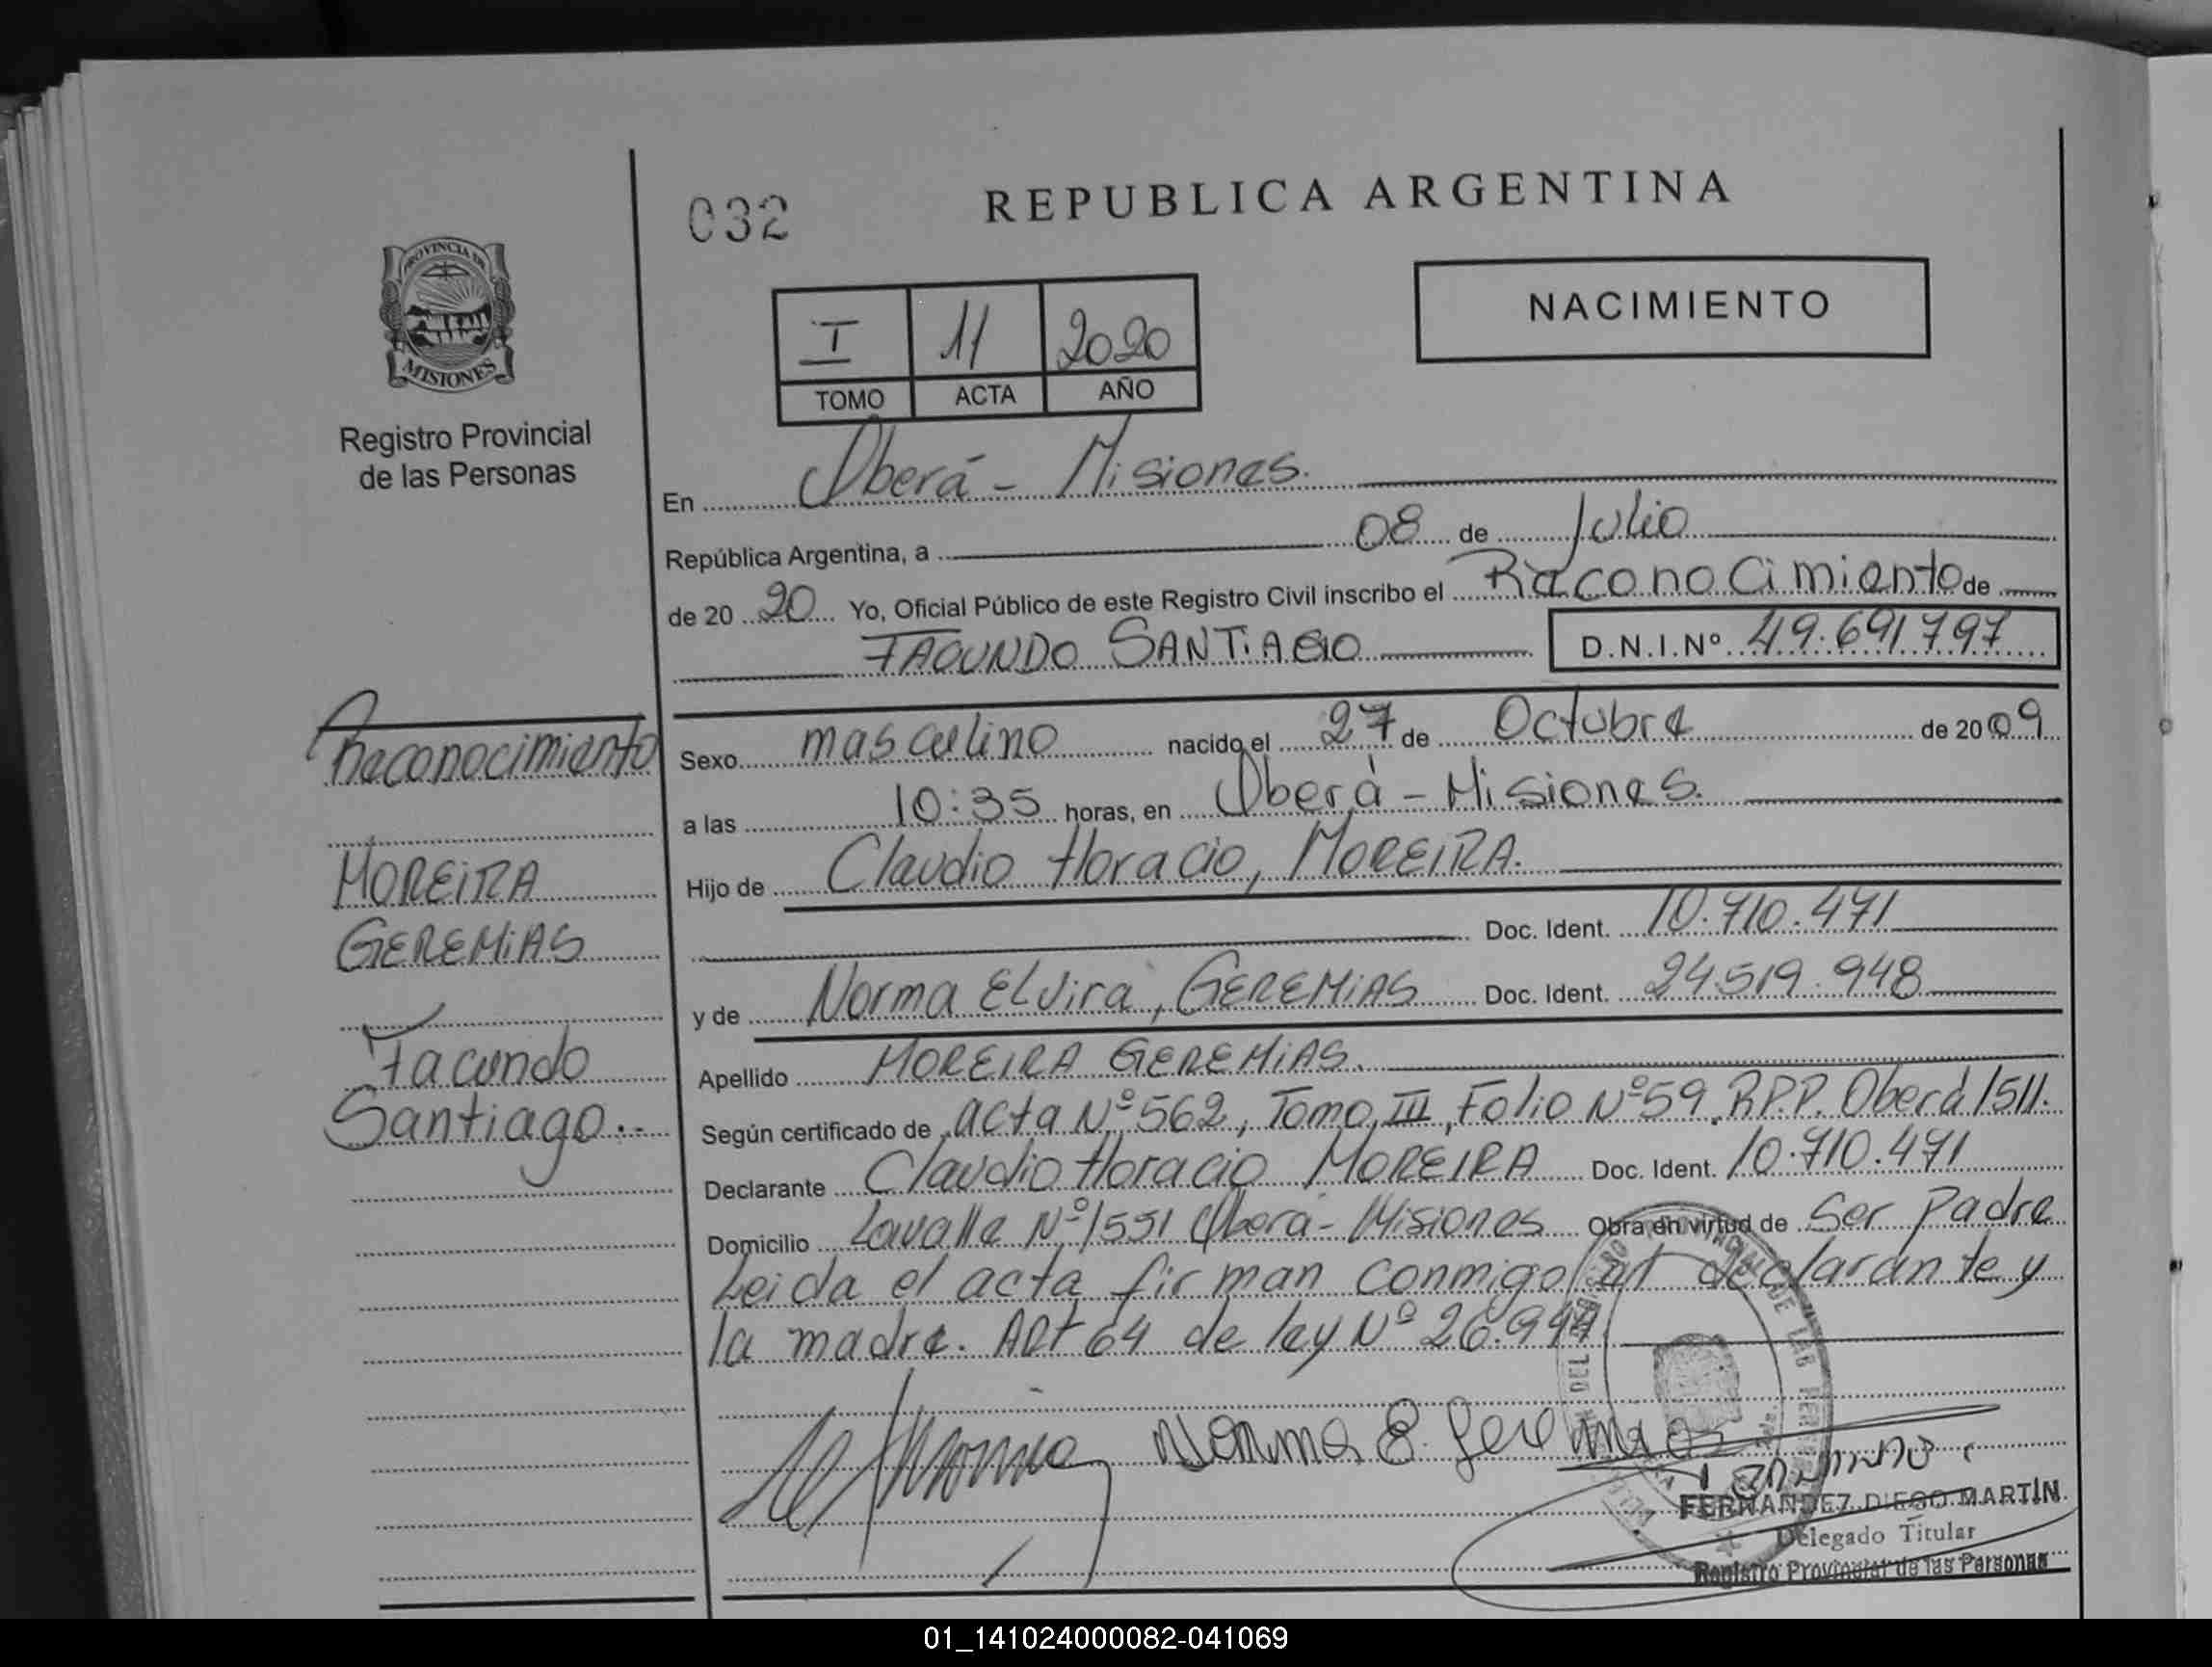 032
REPUBLICA ARGENTINA
PROVINCIA DE
MISIONES
Registro Provincial
de las Personas
NACIMIENTO
I 11 2020
TOMO ACTA AÑO
En Oberá - Misiones.
República Argentina, a 08 de Julio
de 20 20 Yo, Oficial Público de este Registro Civil inscribo el Reconocimiento de
FACUNDO SANTIAGO D.N.I.Nº 49.691797
Reconocimiento
MOREIRA
GEREMIAS
Facundo
Santiago.-
Sexo masculino nacido el 27 de Octubre de 2009
a las 10:35 horas, en Oberá - Misiones.
Hijo de Claudio Horacio, MOREIRA.
Doc. Ident. 10.710.471
y de Norma Elvira, GEREMIAS Doc. Ident. 24.519.948
Apellido MOREIRA GEREMIAS.
Según certificado de acta Nº 562, Tomo III, Folio Nº 59, R.P.P. Oberá 1511.
Declarante Claudio Horacio MOREIRA Doc. Ident. 10.710.471
Domicilio Lavalle Nº 1551 Oberá - Misiones Obra en virtud de Ser Padre
Leida el acta firman conmigo el declarante y
la madre. Art 64 de ley Nº 26.994.
Norma E. Geremias
FERNANDEZ DIEGO MARTÍN
Delegado Titular
Registro Provincial de las Personas
01_141024000082-041069